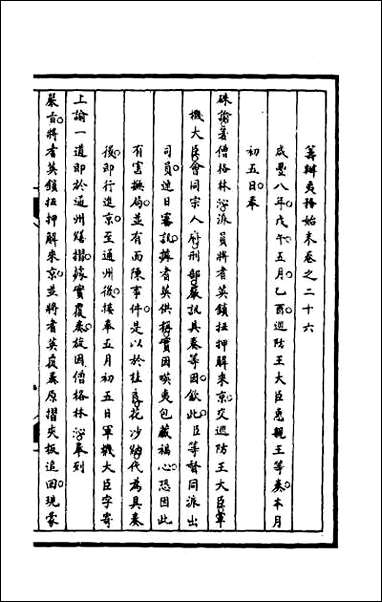 籌辦夷務始末卷之二十六
咸豐八年戊午五月乙酉巡防王大臣惠親王等奏本月
初五日奉
硃諭著僧格林沁派員將耆英鎖扭押解來京交巡防王大臣軍
機大臣會同宗人府刑部嚴訊具奏等因欽此臣等督同派出
司員連日審訊據耆英供稱實因㖸夷包藏禍心恐因此
有害撫局並有面陳事件是以於桂良花沙納代為具奏
後即行進京至通州後接奉五月初五日軍機大臣字寄
上諭一道即於通州繕摺據實覆奏旋因僧格林沁奉到
嚴旨將耆英鎖扭押解來京並將耆英覆奏原摺夾板追回現蒙